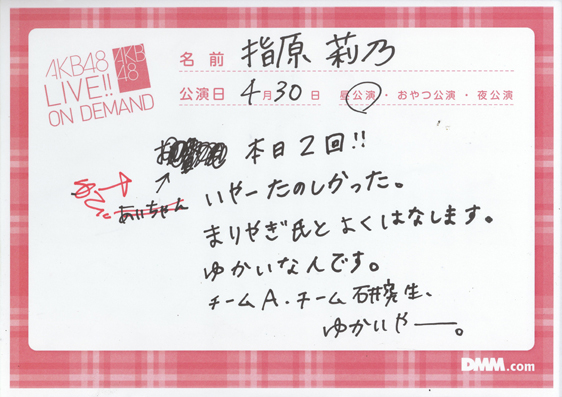 AKB48
LIVE!!
ON DEMAND
AKB
48
名前 指原 莉乃
公演日 4月30日 昼公演・おやつ公演・夜公演
本日2回!!
あいちゃん
いやーたのしかった。
まりやぎ氏とよくはなします。
ゆかいなんです。
チームA.チーム研究生、
ゆかいやー。
DMM.com